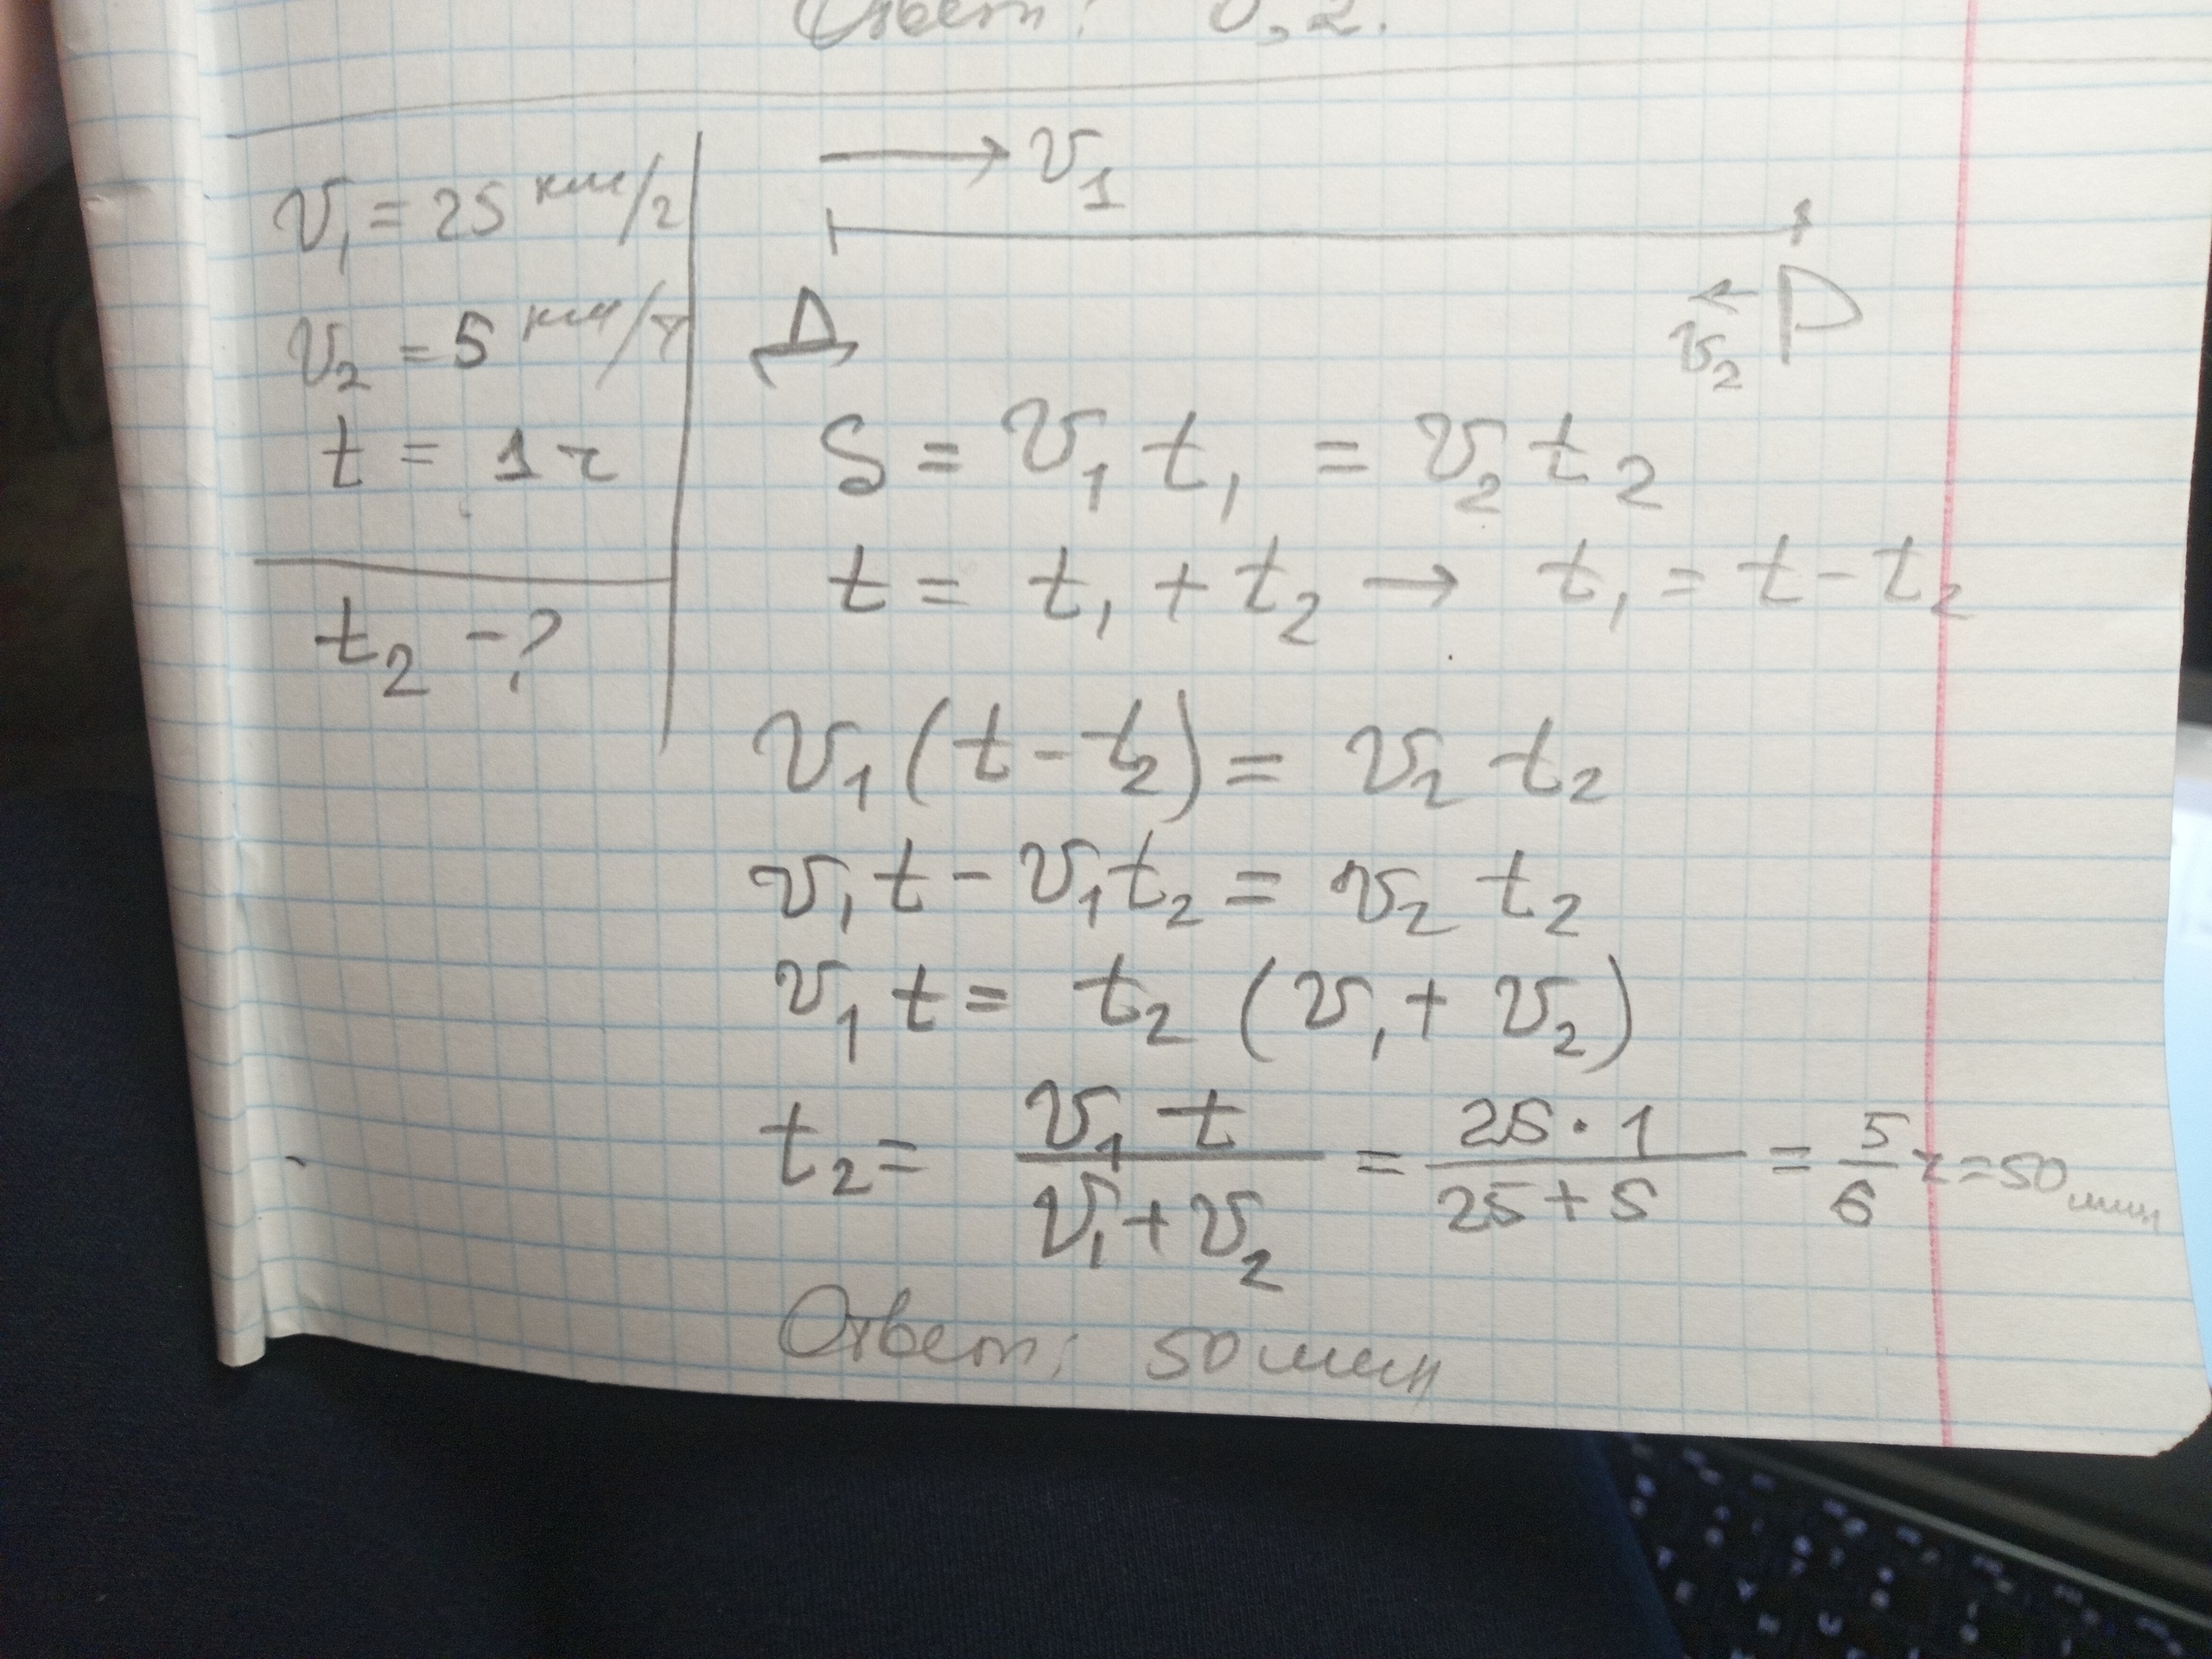 Ответ: 0,2.
v₁ = 25 км/ч
v₂ = 5 км/ч
t = 1 ч
t₂ - ?
→ v₁
Д
Р
← v₂
S = v₁ t₁ = v₂ t₂
t = t₁ + t₂ → t₁ = t - t₂
v₁ (t - t₂) = v₂ t₂
v₁ t - v₁ t₂ = v₂ t₂
v₁ t = t₂ (v₁ + v₂)
t₂ = (v₁ t)/(v₁ + v₂) = (25 · 1)/(25 + 5) = 5/6 ч = 50 мин
Ответ: 50 мин